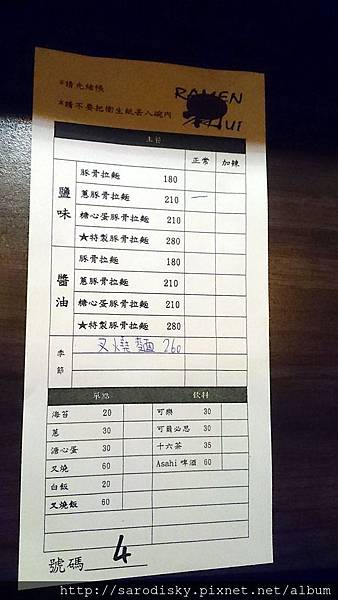 *請先結帳
*請不要把衛生紙丟入碗內
RAMEN
HUI
主食
正常 加辣
鹽味
豚骨拉麵 180
蔥豚骨拉麵 210 一
糖心蛋豚骨拉麵 210
★特製豚骨拉麵 280
醬油
豚骨拉麵 180
蔥豚骨拉麵 210
糖心蛋豚骨拉麵 210
★特製豚骨拉麵 280
季節
叉燒麵 260
單點 飲料
海苔 20 可樂 30
蔥 30 可爾必思 30
溏心蛋 30 十六茶 35
叉燒 60 Asahi 啤酒 60
白飯 20
叉燒飯 60
號碼 4
http://sarodisky.pixnet.net/album